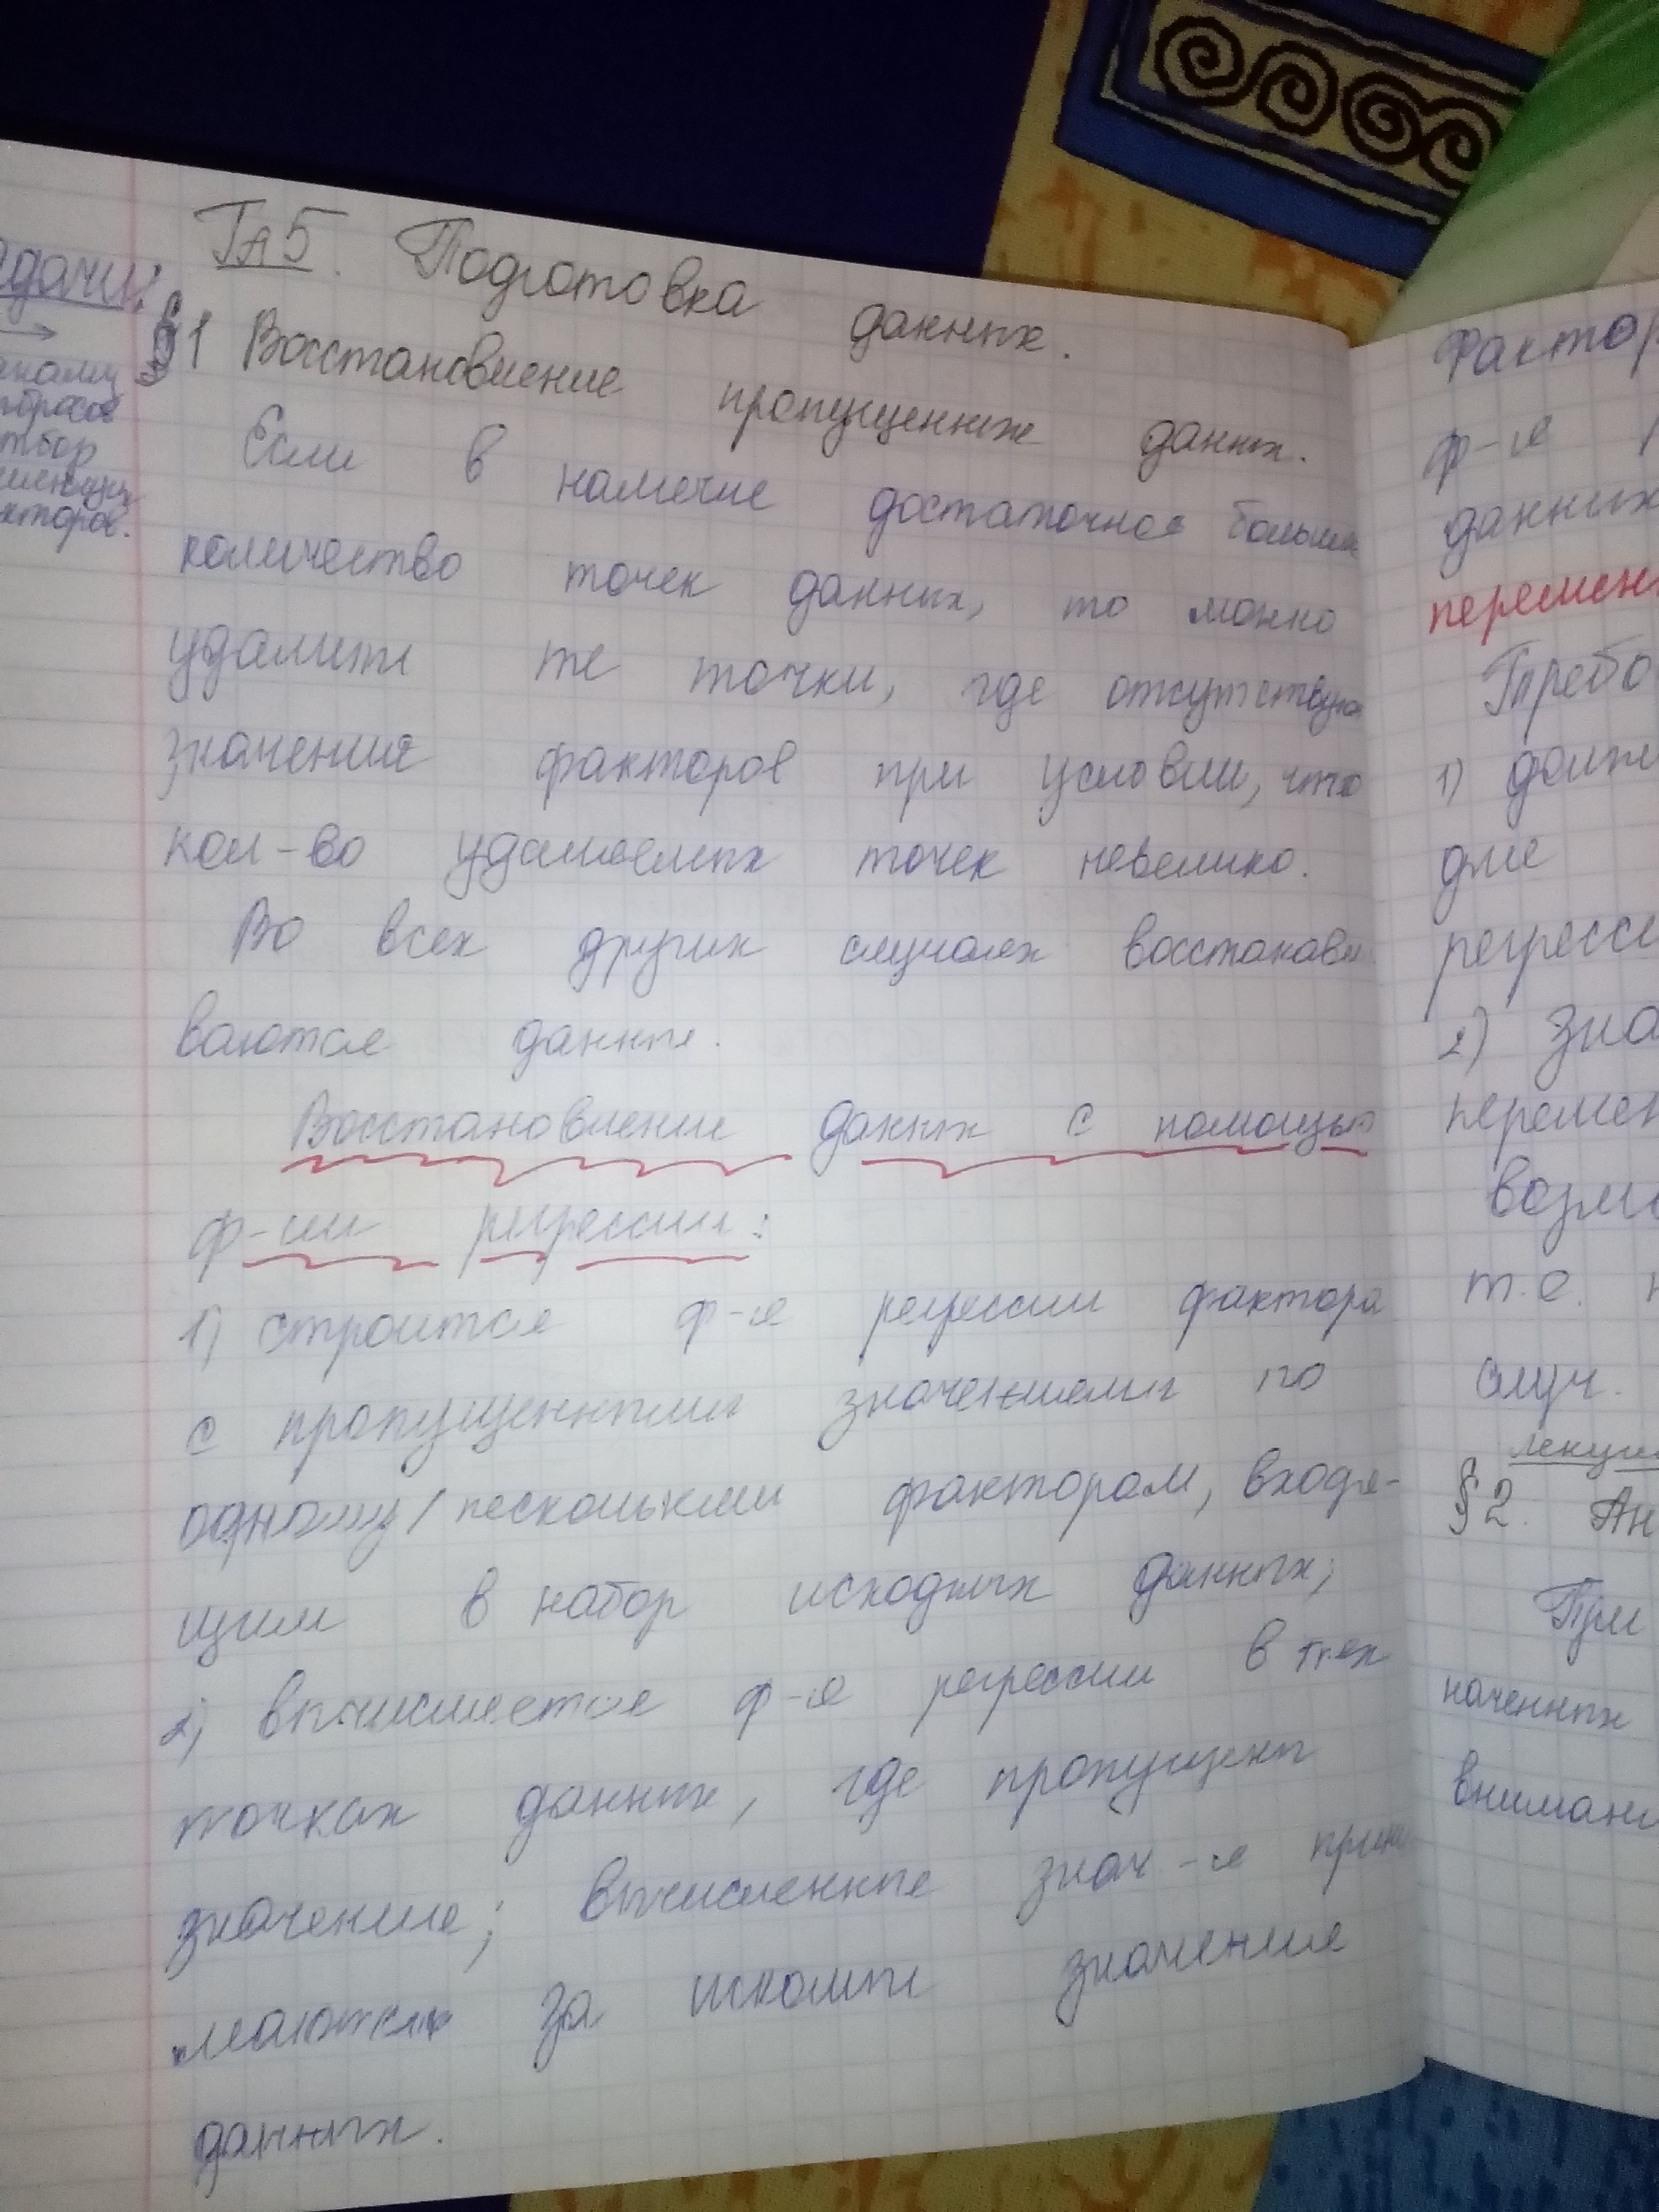 Гл 5. Подготовка данных.
§1 Восстановление пропущенных данных.
Если в наличие достаточное больш
количество точек данных, то можно
удалить те точки, где отсутствую
значения факторов при условии, что
кол-во удаляемых точек невелико.
Во всех других случаях восстанавл
ваются данные.
Восстановление данных с помощью
ф-ии регрессии:
1) строится ф-я регрессии фактора
с пропущенными значениями по
одному/несколькими факторам, входя-
щим в набор исходных данных;
2) вычисляется ф-я регрессии в тех
точках данных, где пропущены
значение; вычисленные знач-я прини
маются за искомые значение
данных.
адачи:
торов.
Фактор
ф-я
данных
перемен
Требо
1) долж
для
регресси
2) зна
перемен
возмо
т.е.
случ.
лекция
§2. Ан
При
наченных
внимани